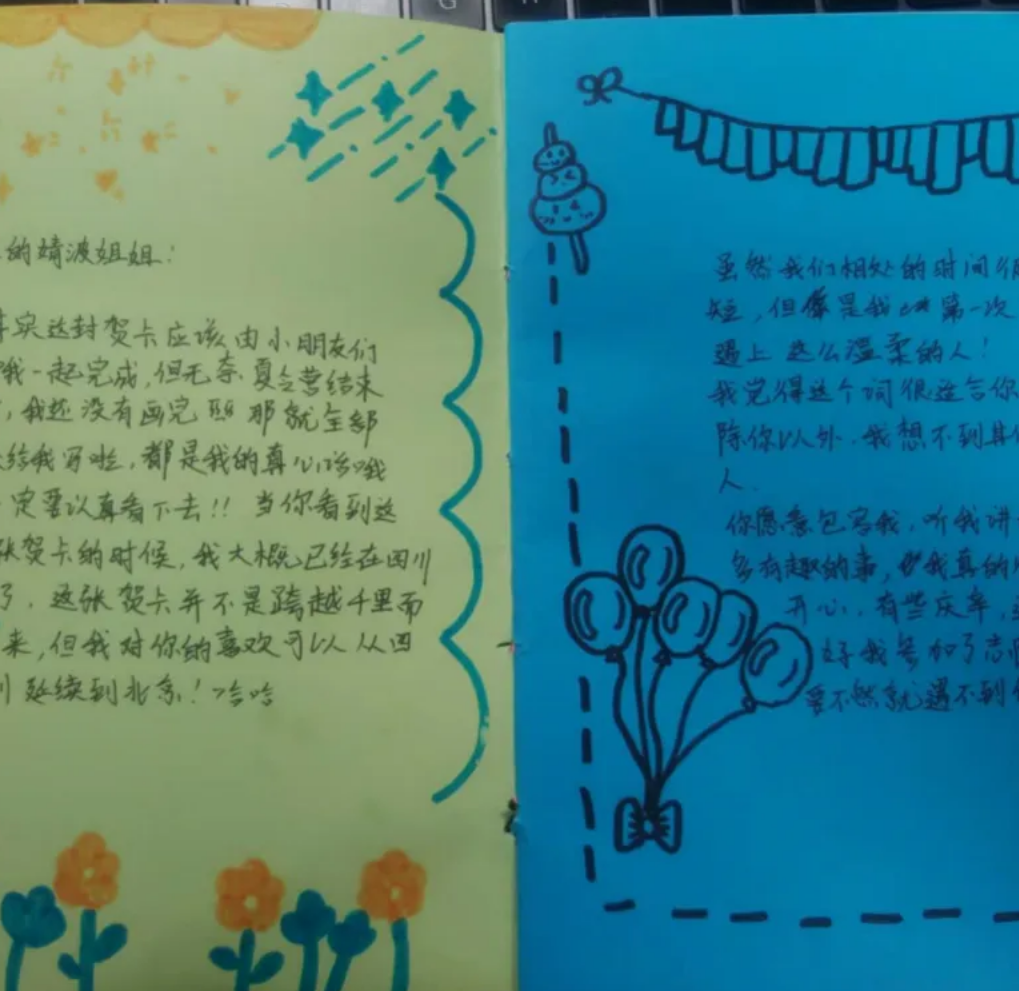 的婧波姐姐:
实这封贺卡应该由小朋友们
我一起完成,但无奈夏令营结束
,我还没有画完 那就全部
给我写啦,都是我的真心话哦
定要认真看下去!! 当你看到这
张贺卡的时候,我大概已经在四川
了,这张贺卡并不是跨越千里而
来,但我对你的喜欢可以从四
川延续到北京!哈哈
虽然我们相处的时间很
短,但像是我 第一次
遇上这么温柔的人!
我觉得这个词很适合你
除你以外,我想不到其他
人.
你愿意包容我,听我讲
多有趣的事,我真的
开心,有些庆幸,
好我参加了
要不然就遇不到